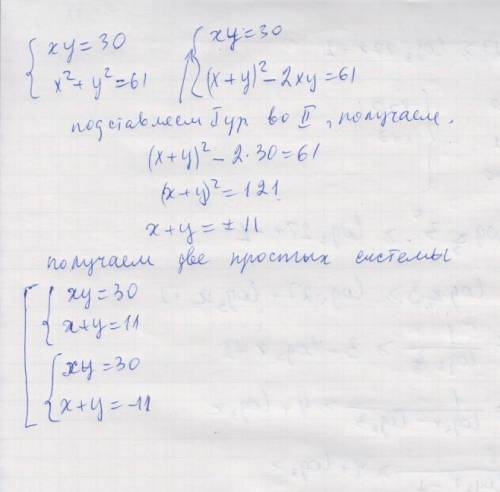 xy=30 xy=30
x²+y²=61 (x+y)²-2xy=61
подставляем I ур во II, получаем.
(x+y)²-2·30=61
(x+y)²=121
x+y=±11
получаем две простых системы
xy=30
x+y=11
xy=30
x+y=-11